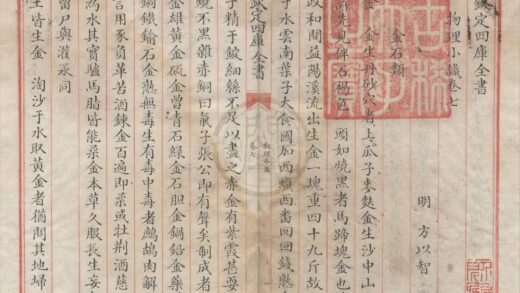 欽定四庫全書
物理小識卷七
明 方以智
金石類
金 金生丹砂穴者上瓜子麥麩金生沙中山
許先見伴石色一頭如燒黑者馬蹄塊金也
政和間益陽溪流出生金一塊重四十九斤故
于水雲南葉子大食國加西蠟西畨回回錢熟
欽定四庫全書
物理小識
卷七
子精于鍛細絲不足以盡之赤金有紫霞甚
燒不黑雜赤銅曰氣子張公即有聲矣制成者
金雄黃金硫金曾青石綠金石胆金鋼金藥
銅鐵鍮石金熟無毒生有毒中毒者鷓鴣肉解
言用豕負革苦酒鍊金百遍即柔或牡荆酒慈
為水其實驢馬脂皆能柔金本草久服長生妄
留尸與灌汞同
生皆生金 淘沙于水取黃金者猶問其地婦